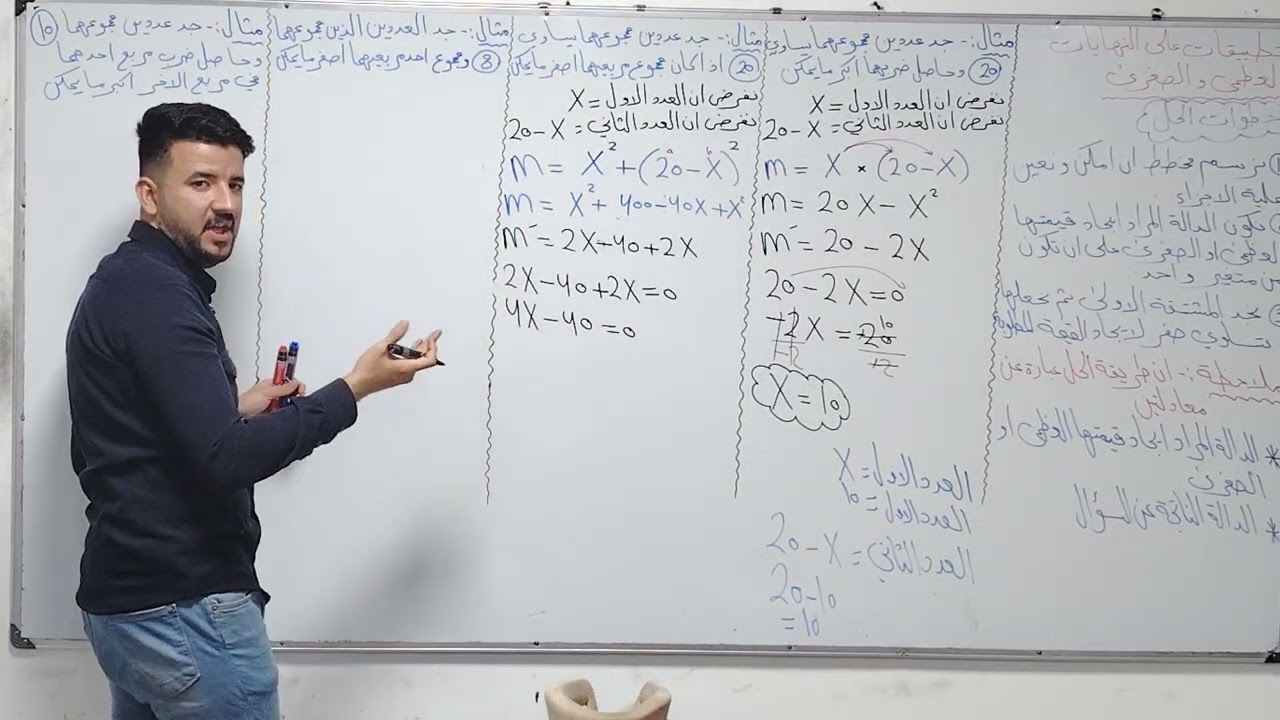 تطبيقات على النهايات
العظمى والصغرى
خطوات الحل
نرسم مخطط ان امكن ونعين
عليه الاجزاء
نكون الدالة المراد ايجاد قيمتها
العظمى او الصغرى على ان تكون
من متغير واحد
نجد المشتقة الاولى ثم نجعلها
تساوي صفر لايجاد القيمة المطلوبة
ملاحظة :- ان طريقة الحل عبارة عن
معادلتين
* الدالة المراد ايجاد قيمتها العظمى او
الصغرى
* الدالة الناتجة عن السؤال
مثال :- جد عددين مجموعهما يساوي
20 وحاصل ضربهما اكبر مايمكن
نفرض ان العدد الاول = X
نفرض ان العدد الثاني = 20-X
m = X × (20-X)
m = 20X - X²
m⁻ = 20 - 2X
20 - 2X = 0
-2X = -20
-2 -2
10
X = 10
العدد الاول = X
العدد الاول = 10
العدد الثاني = 20-X
20-10
=10
مثال :- جد عددين مجموعهما يساوي
20 اذ اكان مجموع مربعيهما اصغر مايمكن
نفرض ان العدد الاول = X
نفرض ان العدد الثاني = 20-X
m = X² + (20-X)²
m = X² + 400-40X+X²
m⁻ = 2X-40+2X
2X-40+2X=0
4X-40=0
مثال :- جد العددين الذين مجموعهما
8 ومجموع مربعيهما اصغر مايمكن
مثال :- جد عددين مجموعهما 10
وحاصل ضرب مربع احدهما
في مربع الاخر اكبر مايمكن